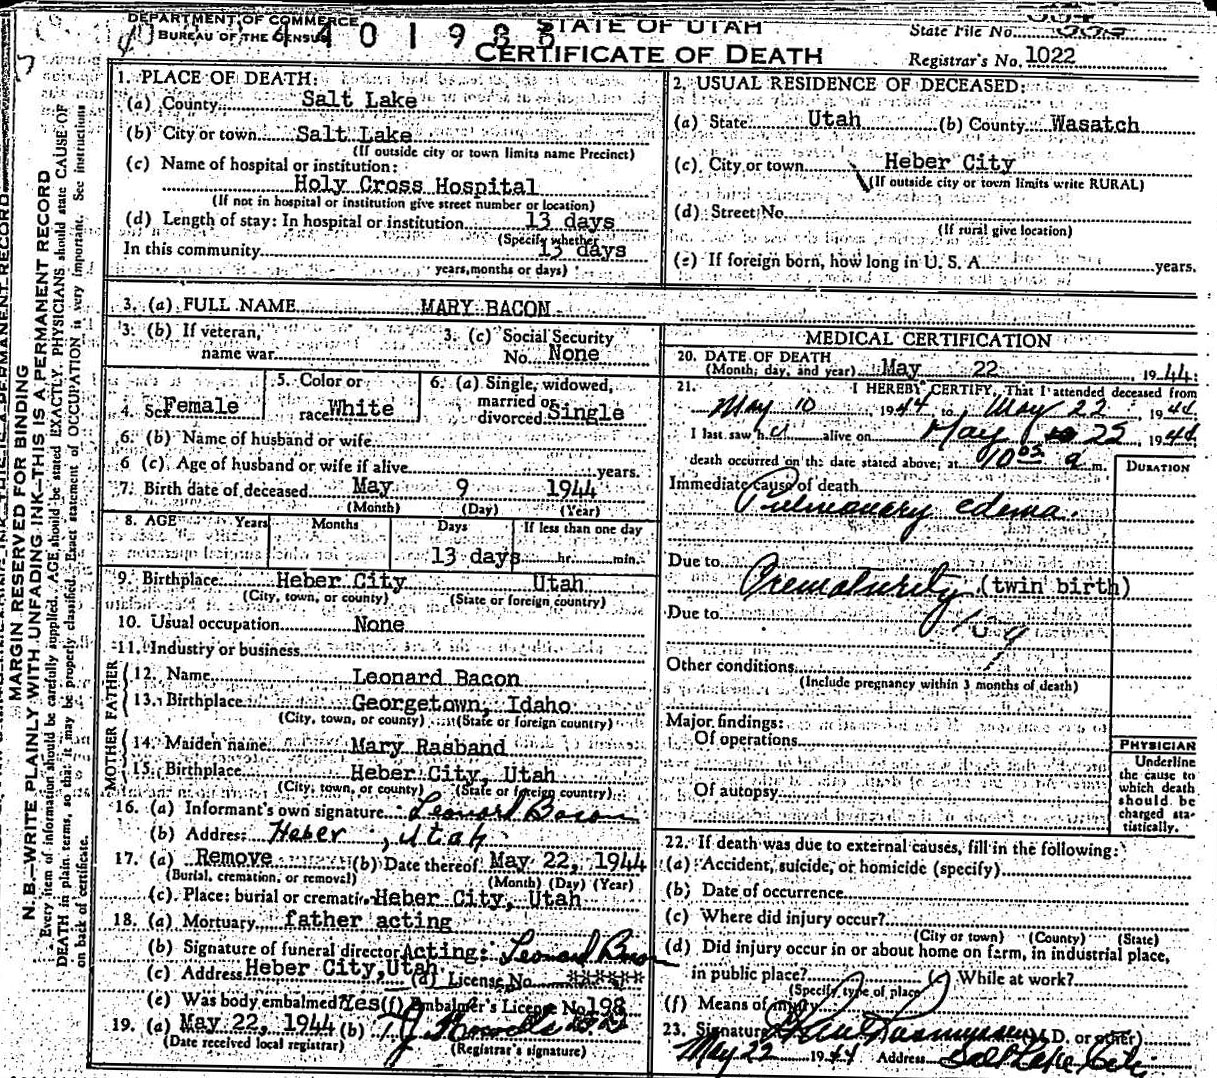 DEPARTMENT OF COMMERCE
BUREAU OF THE CENSUS
STATE OF UTAH
CERTIFICATE OF DEATH
State File No.
Registrar's No. 1022
MARGIN RESERVED FOR BINDING
N. B.—WRITE PLAINLY WITH UNFADING INK—THIS IS A PERMANENT RECORD
Every item of information should be carefully supplied. AGE should be stated EXACTLY. PHYSICIANS should state CAUSE OF
DEATH in plain terms, so that it may be properly classified. Exact statement of OCCUPATION is very important. See instructions
on back of certificate.
1. PLACE OF DEATH:
(a) County Salt Lake
(b) City or town Salt Lake
(If outside city or town limits name Precinct)
(c) Name of hospital or institution:
Holy Cross Hospital
(If not in hospital or institution give street number or location)
(d) Length of stay: In hospital or institution 13 days
(Specify whether
In this community 13 days
years, months or days)
2. USUAL RESIDENCE OF DECEASED:
(a) State Utah (b) County Wasatch
(c) City or town Heber City
(If outside city or town limits write RURAL)
(d) Street No.
(If rural give location)
(e) If foreign born, how long in U. S. A. years.
3. (a) FULL NAME MARY BACON
3. (b) If veteran,
name war
3. (c) Social Security
No. None
4. Sex Female
5. Color or
race White
6. (a) Single, widowed,
married or
divorced Single
6. (b) Name of husband or wife
6 (c). Age of husband or wife if alive years.
7. Birth date of deceased May 9 1944
(Month) (Day) (Year)
8. AGE Years Months Days If less than one day
13 days hr. min.
9. Birthplace Heber City Utah
(City, town, or county) (State or foreign country)
10. Usual occupation None
11. Industry or business
FATHER
12. Name Leonard Bacon
13. Birthplace Georgetown, Idaho
(City, town, or county) (State or foreign country)
MOTHER
14. Maiden name Mary Rasband
15. Birthplace Heber City, Utah
(City, town, or county) (State or foreign country)
16. (a) Informant's own signature Leonard Bacon
(b) Address Heber, Utah
17. (a) Remove (b) Date thereof May 22, 1944
(Burial, cremation, or removal) (Month) (Day) (Year)
(c) Place: burial or cremation Heber City, Utah
18. (a) Mortuary father acting
(b) Signature of funeral director Acting: Leonard Bacon
(c) Address Heber City, Utah (d) License No. ******
(e) Was body embalmed? Yes (f) Embalmer's License No. 198
19. (a) May 22, 1944 (b)
(Date received local registrar) (Registrar's signature)
MEDICAL CERTIFICATION
20. DATE OF DEATH
(Month, day, and year) May 22 1944
21. I HEREBY CERTIFY, That I attended deceased from
May 10 1944 to May 22 1944
I last saw her alive on May 22, 1944
death occurred on the date stated above, at 10 03 a m.
DURATION
Immediate cause of death
Pulmonary edema.
Due to
Prematurity (twin birth)
Due to
Other conditions
(Include pregnancy within 3 months of death)
Major findings:
Of operations
Of autopsy
PHYSICIAN
Underline
the cause to
which death
should be
charged sta-
tistically.
22. If death was due to external causes, fill in the following:
(a) Accident, suicide, or homicide (specify)
(b) Date of occurrence
(c) Where did injury occur?
(City or town) (County) (State)
(d) Did injury occur in or about home on farm, in industrial place,
in public place? While at work?
(Specify type of place)
(f) Means of injury
23. Signature Rasmussen (M.D. or other)
May 22 1944 Address Salt Lake City